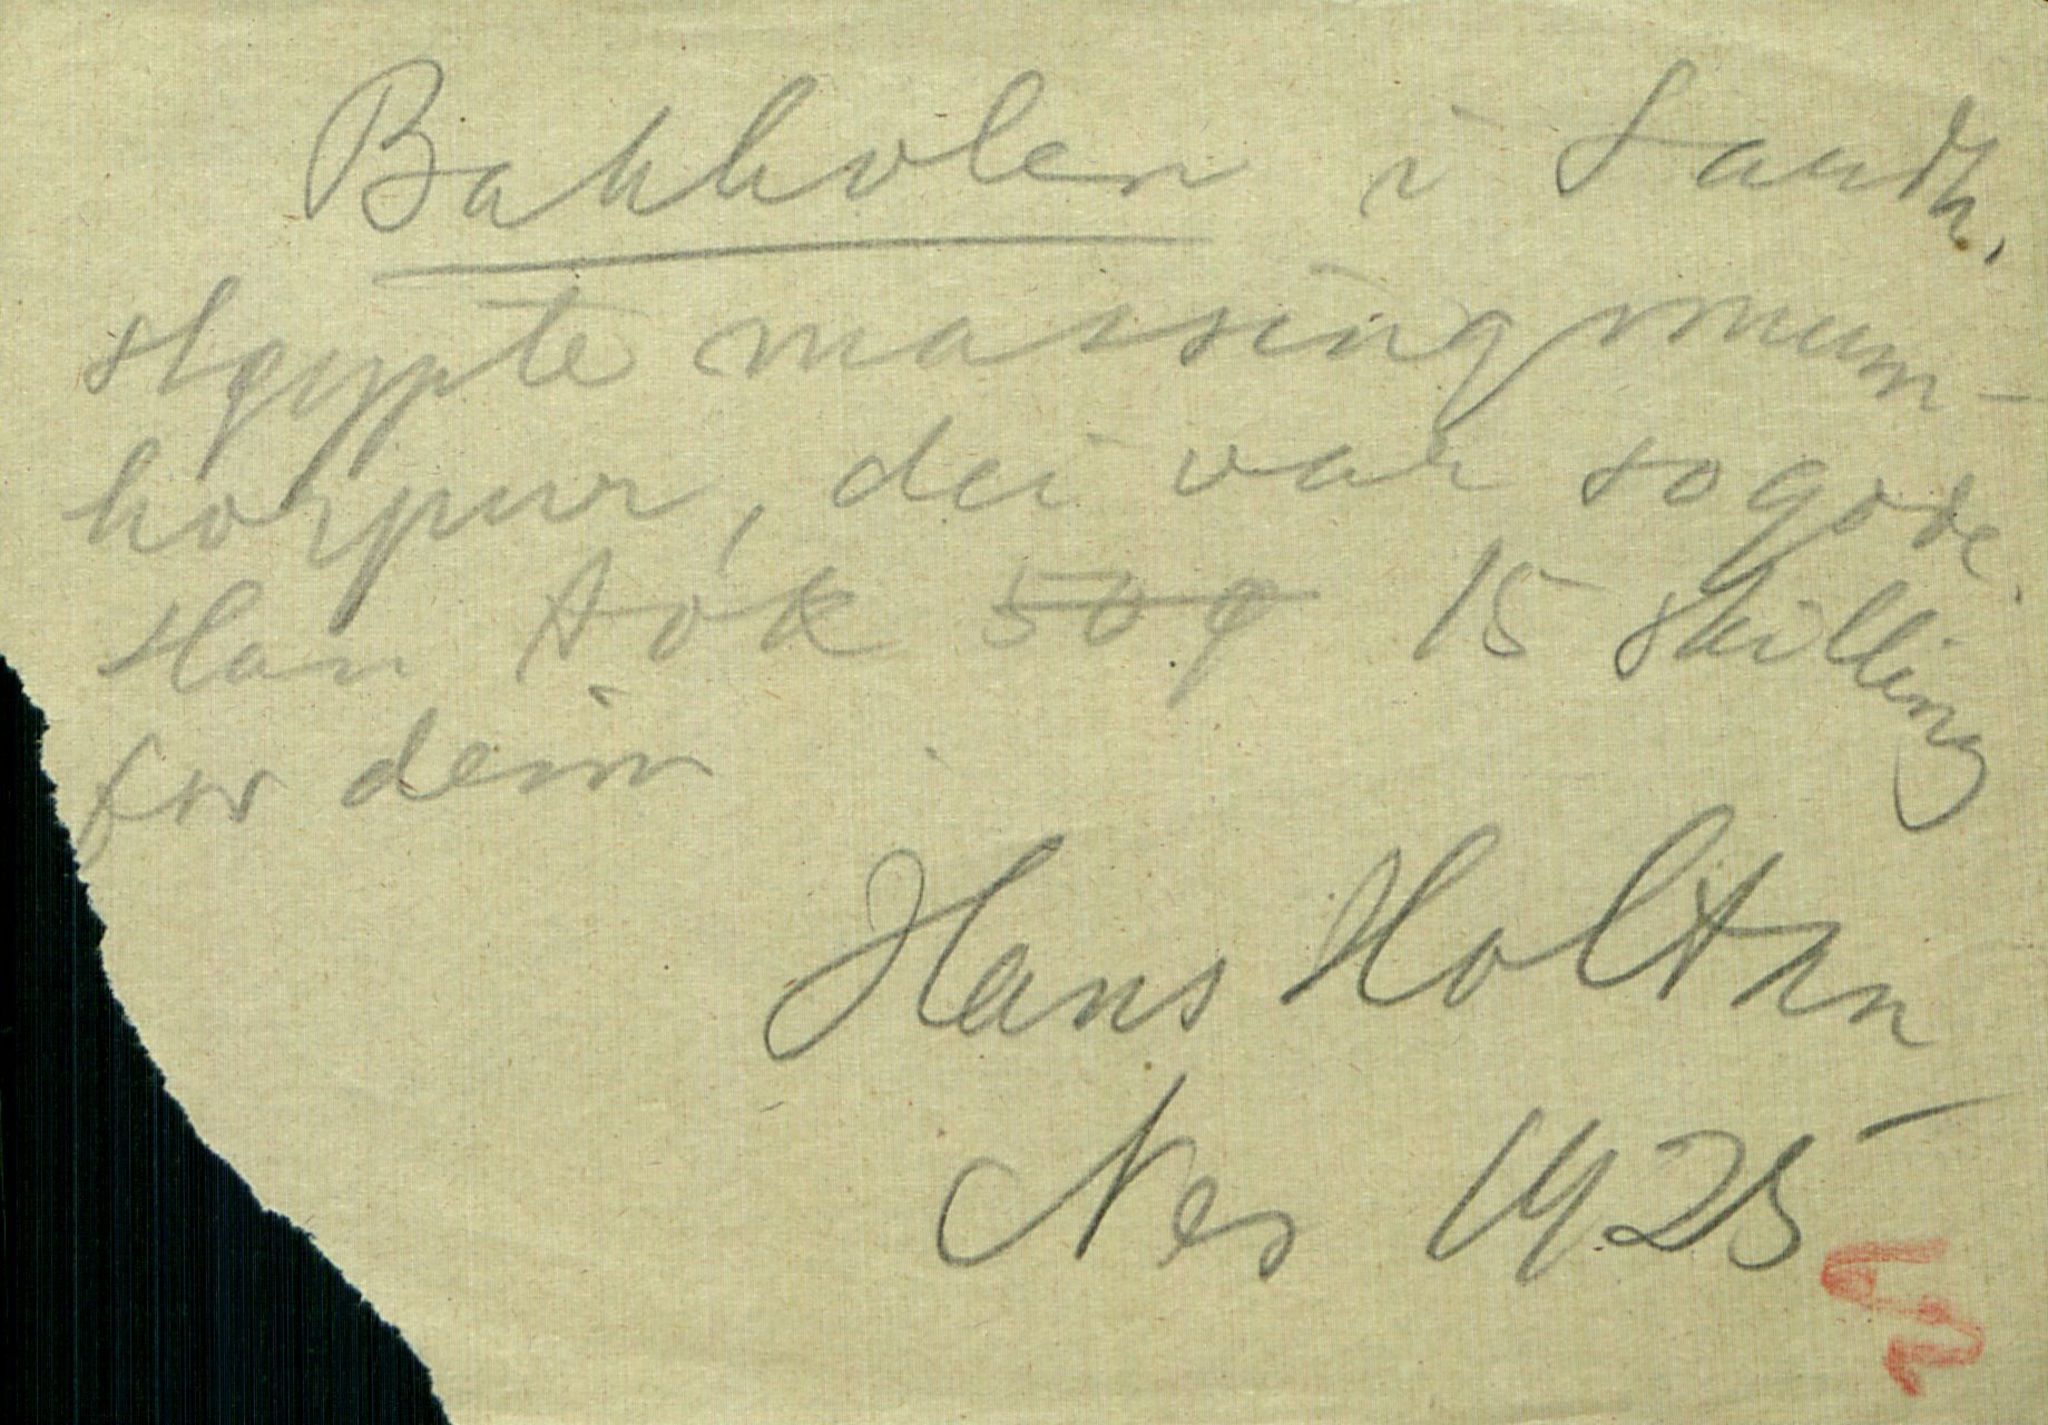 Bakkolen i Sandh.
støypte massingmunn-
korpur, dei var so gode.
Han tok 50 ø 15 skilling
for deim
Hans Holtan
Nes 1925